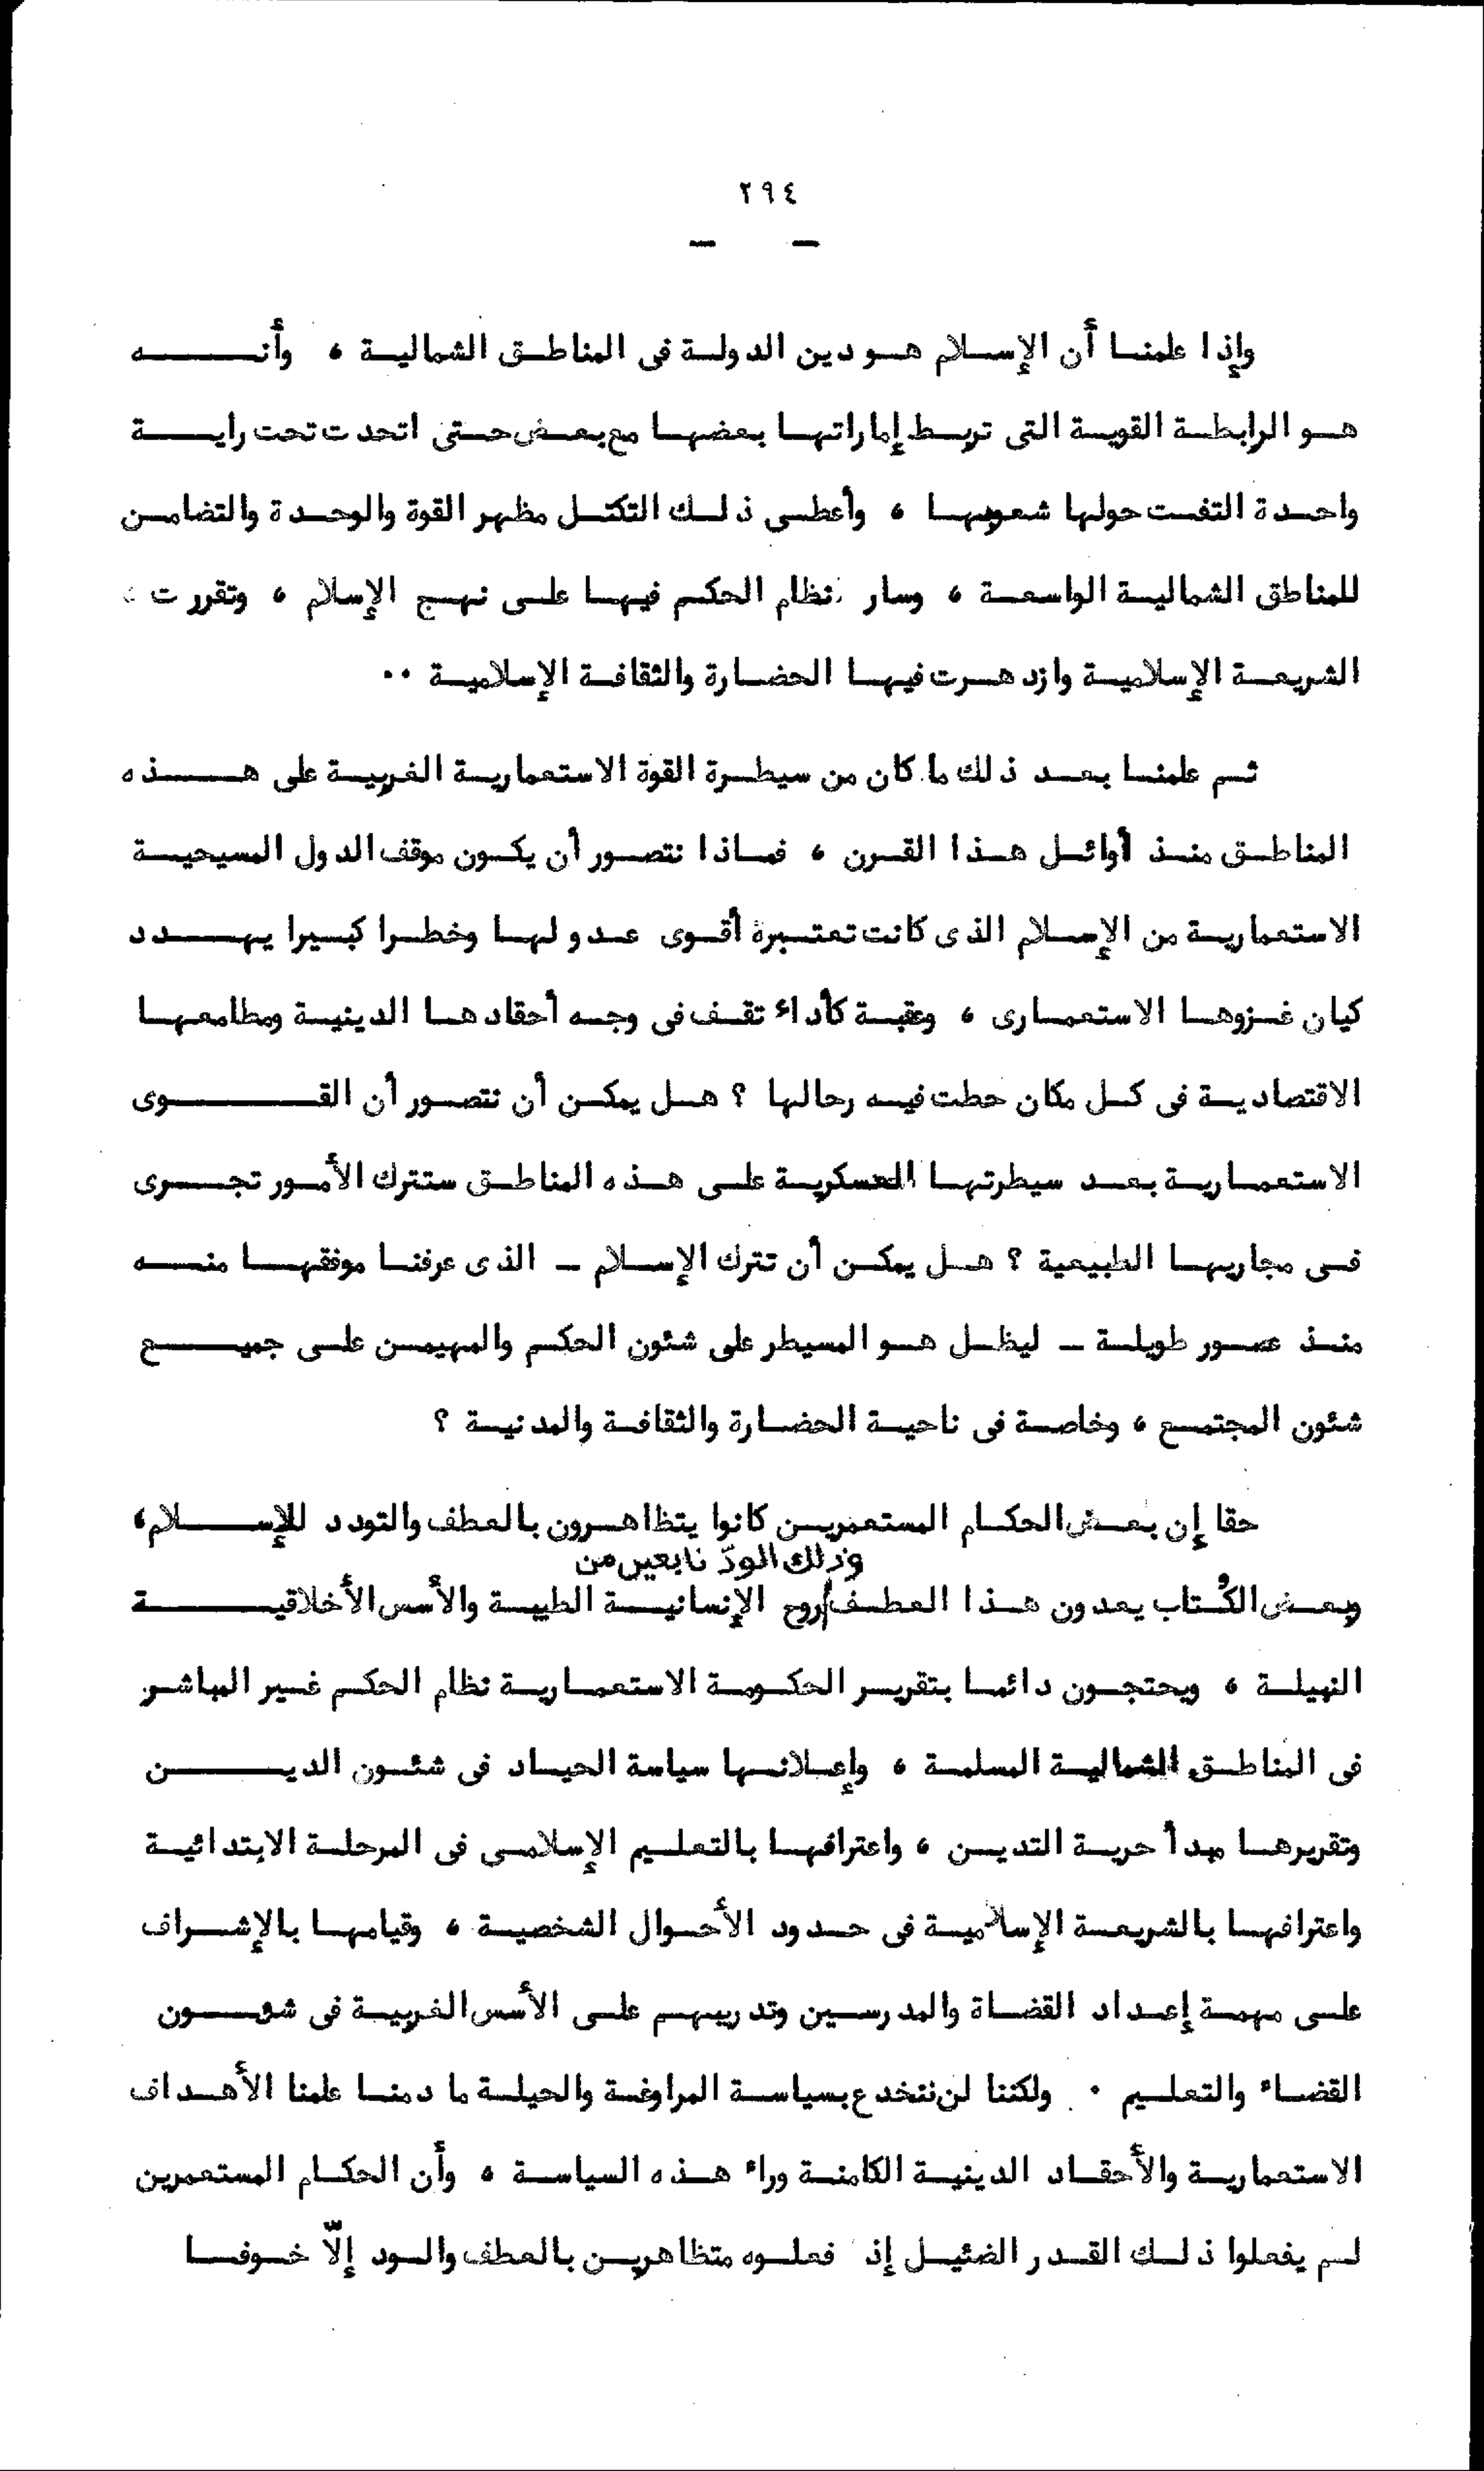 ٢٩٤
— —
وإذا علمنا أن الإسلام هو دين الدولة فى المناطق الشمالية ، وأنه
هو الرابطة القوية التى تربط إماراتها بعضها مع بعض حتى اتحدت تحت راية
واحدة التفت حولها شعوبها ، وأعطى ذلك التكتل مظهر القوة والوحدة والتضامن
للمناطق الشمالية الواسعة ، وسار نظام الحكم فيها على نهج الإسلام ، وتقررت
الشريعة الإسلامية وازدهرت فيها الحضارة والثقافة الإسلامية ..
ثم علمنا بعد ذلك ما كان من سيطرة القوة الاستعمارية الغربية على هذه
المناطق منذ أوائل هذا القرن ، فماذا نتصور أن يكون موقف الدول المسيحية
الاستعمارية من الإسلام الذى كانت تعتبره أقوى عدو لها وخطرا كبيرا يهدد
كيان غزوها الاستعمارى ، وعقبة كأداء تقف فى وجه أحقادها الدينية ومطامعها
الاقتصادية فى كل مكان حطت فيه رحالها ؟ هل يمكن أن نتصور أن القوى
الاستعمارية بعد سيطرتها العسكرية على هذه المناطق ستترك الأمور تجرى
فى مجاريها الطبيعية ؟ هل يمكن أن تترك الإسلام – الذى عرفنا موفقها منه
منذ عصور طويلة – ليظل هو المسيطر على شئون الحكم والمهيمن على جميع
شئون المجتمع ، وخاصة فى ناحية الحضارة والثقافة والمدنية ؟
حقا إن بعض الحكام المستعمرين كانوا يتظاهرون بالعطف والتودد للإسلام،
وذلك الودّ نابعين من
وبعض الكُتاب يعدون هذا العطف/روح الإنسانية الطيبة والأسس الأخلاقية
النبيلة ، ويحتجون دائما بتقرير الحكومة الاستعمارية نظام الحكم غير المباشر
فى المناطق الشمالية المسلمة ، وإعلانها سياسة الحياد فى شئون الدين
وتقريرها مبدأ حرية التدين ، واعترافها بالتعليم الإسلامى فى المرحلة الابتدائية
واعترافها بالشريعة الإسلامية فى حدود الأحوال الشخصية ، وقيامها بالإشراف
على مهمة إعداد القضاة والمدرسين وتدريبهم على الأسس الغربية فى شئون
القضاء والتعليم . ولكننا لن ننخدع بسياسة المراوغة والحيلة ما دمنا علمنا الأهداف
الاستعمارية والأحقاد الدينية الكامنة وراء هذه السياسة ، وأن الحكام المستعمرين
لم يفعلوا ذلك القدر الضئيل إذ فعلوه متظاهرين بالعطف والود إلّا خوفا